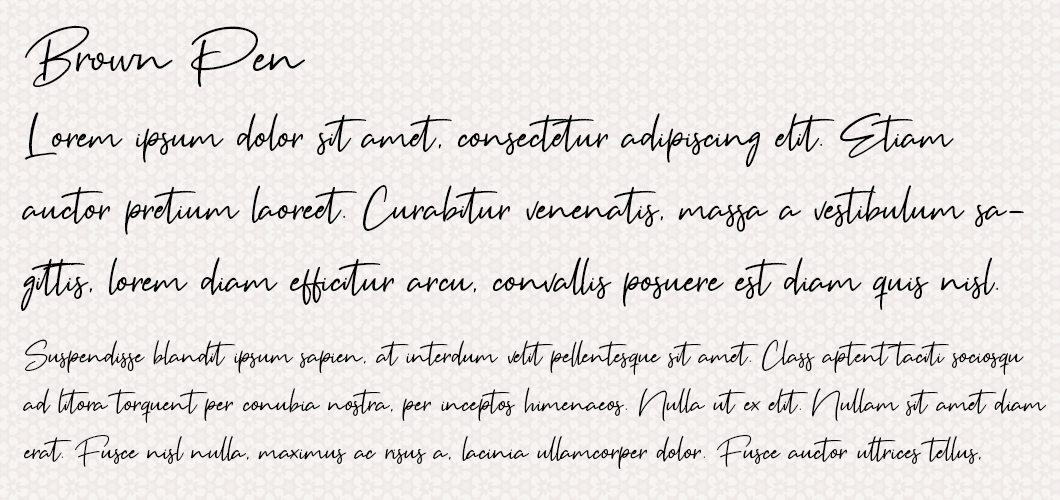 Brown Pen
Lorem ipsum dolor sit amet, consectetur adipiscing elit. Etiam
auctor pretium laoreet. Curabitur venenatis, massa a vestibulum sa-
gittis, lorem diam efficitur arcu, convallis posuere est diam quis nisl.
Suspendisse blandit ipsum sapien, at interdum velit pellentesque sit amet. Class aptent taciti sociosqu
ad litora torquent per conubia nostra, per inceptos himenaeos. Nulla ut ex elit. Nullam sit amet diam
erat. Fusce nisl nulla, maximus ac risus a, lacinia ullamcorper dolor. Fusce auctor ultrices tellus,